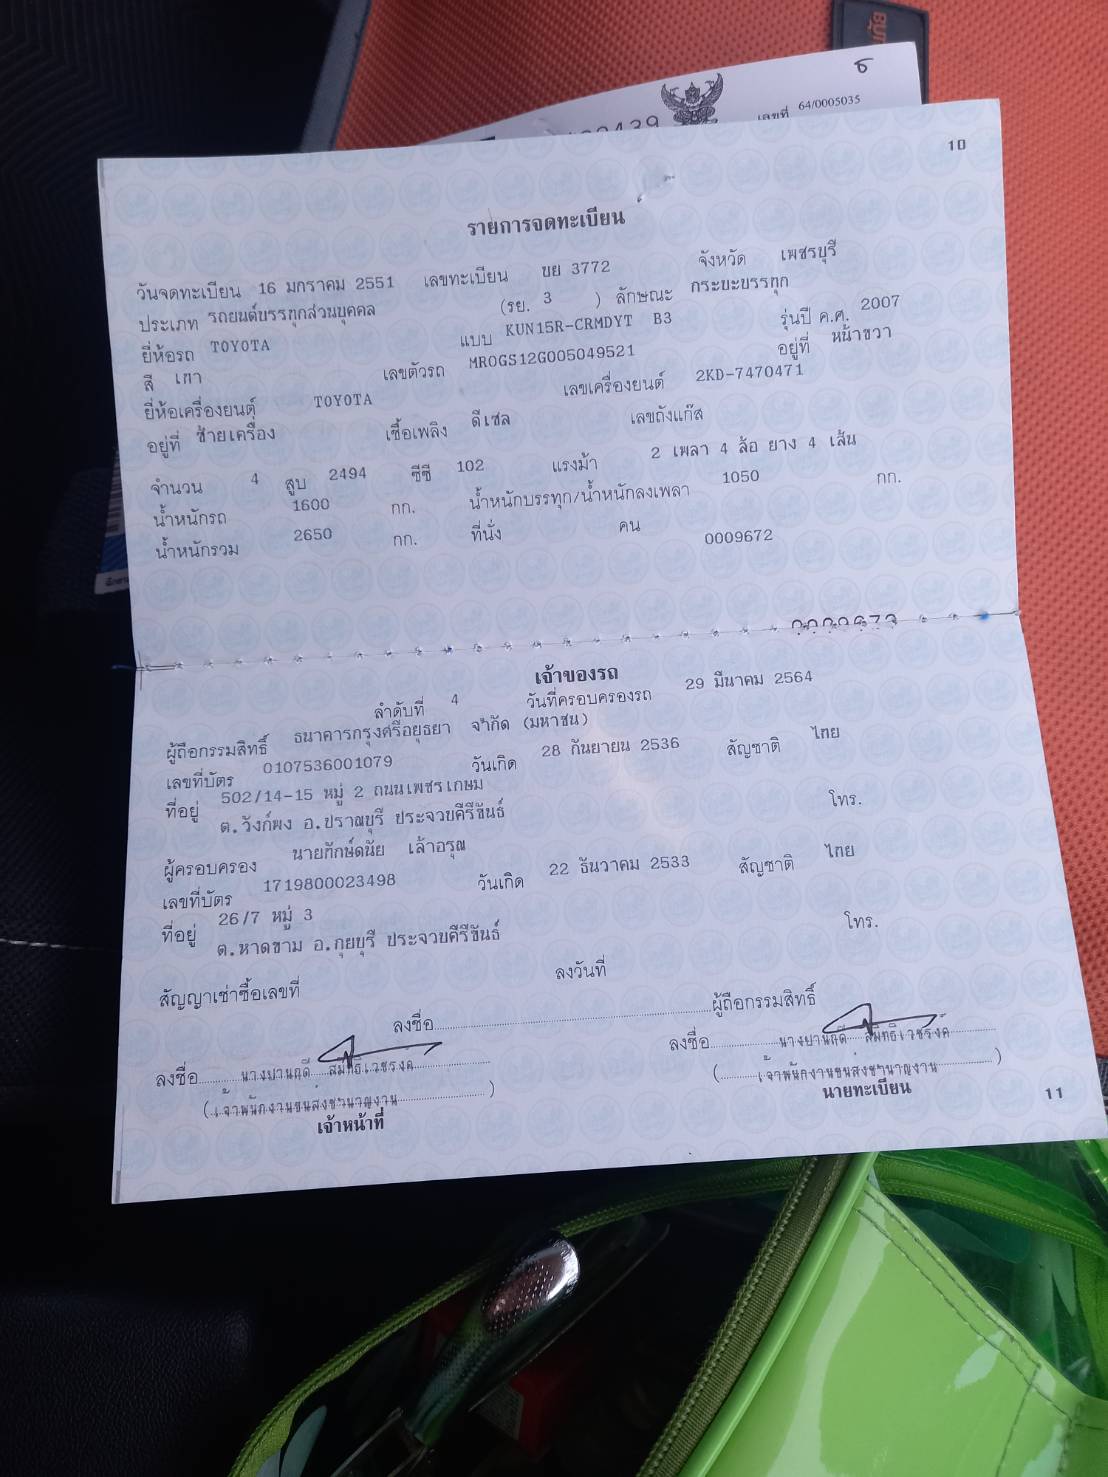 ธ
เลขที่ 64/0005035
10
รายการจดทะเบียน
วันจดทะเบียน 16 มกราคม 2551 เลขทะเบียน บย 3772 จังหวัด เพชรบุรี
ประเภท รถยนต์บรรทุกส่วนบุคคล (รย. 3 ) ลักษณะ กระบะบรรทุก
ยี่ห้อรถ TOYOTA แบบ KUN15R-CRMDYT B3 รุ่นปี ค.ศ. 2007
สี เทา เลขตัวรถ MR0GS12G005049521 อยู่ที่ หน้าขวา
ยี่ห้อเครื่องยนต์ TOYOTA เลขเครื่องยนต์ 2KD-7470471
อยู่ที่ ซ้ายเครื่อง เชื้อเพลิง ดีเซล เลขถังแก๊ส
จำนวน 4 สูบ 2494 ซีซี 102 แรงม้า 2 เพลา 4 ล้อ ยาง 4 เส้น
น้ำหนักรถ 1600 กก. น้ำหนักบรรทุก/น้ำหนักลงเพลา 1050 กก.
น้ำหนักรวม 2650 กก. ที่นั่ง คน
0009672
เจ้าของรถ
ลำดับที่ 4 วันที่ครอบครองรถ 29 มีนาคม 2564
ผู้ถือกรรมสิทธิ์ ธนาคารกรุงศรีอยุธยา จำกัด (มหาชน)
เลขที่บัตร 0107536001079 วันเกิด 28 กันยายน 2536 สัญชาติ ไทย
ที่อยู่ 502/14-15 หมู่ 2 ถนนเพชรเกษม
ต.วังก์พง อ.ปราณบุรี ประจวบคีรีขันธ์ โทร.
ผู้ครอบครอง นายภักษ์ดนัย เล้าอรุณ
เลขที่บัตร 1719800023498 วันเกิด 22 ธันวาคม 2533 สัญชาติ ไทย
ที่อยู่ 26/7 หมู่ 3
ต.หาดขาม อ.กุยบุรี ประจวบคีรีขันธ์ โทร.
สัญญาเช่าซื้อเลขที่ ลงวันที่
ลงชื่อ ผู้ถือกรรมสิทธิ์
ลงชื่อ ลงชื่อ
(เจ้าพนักงานขนส่งชำนาญงาน) (เจ้าพนักงานขนส่งชำนาญงาน)
เจ้าหน้าที่ นายทะเบียน
11